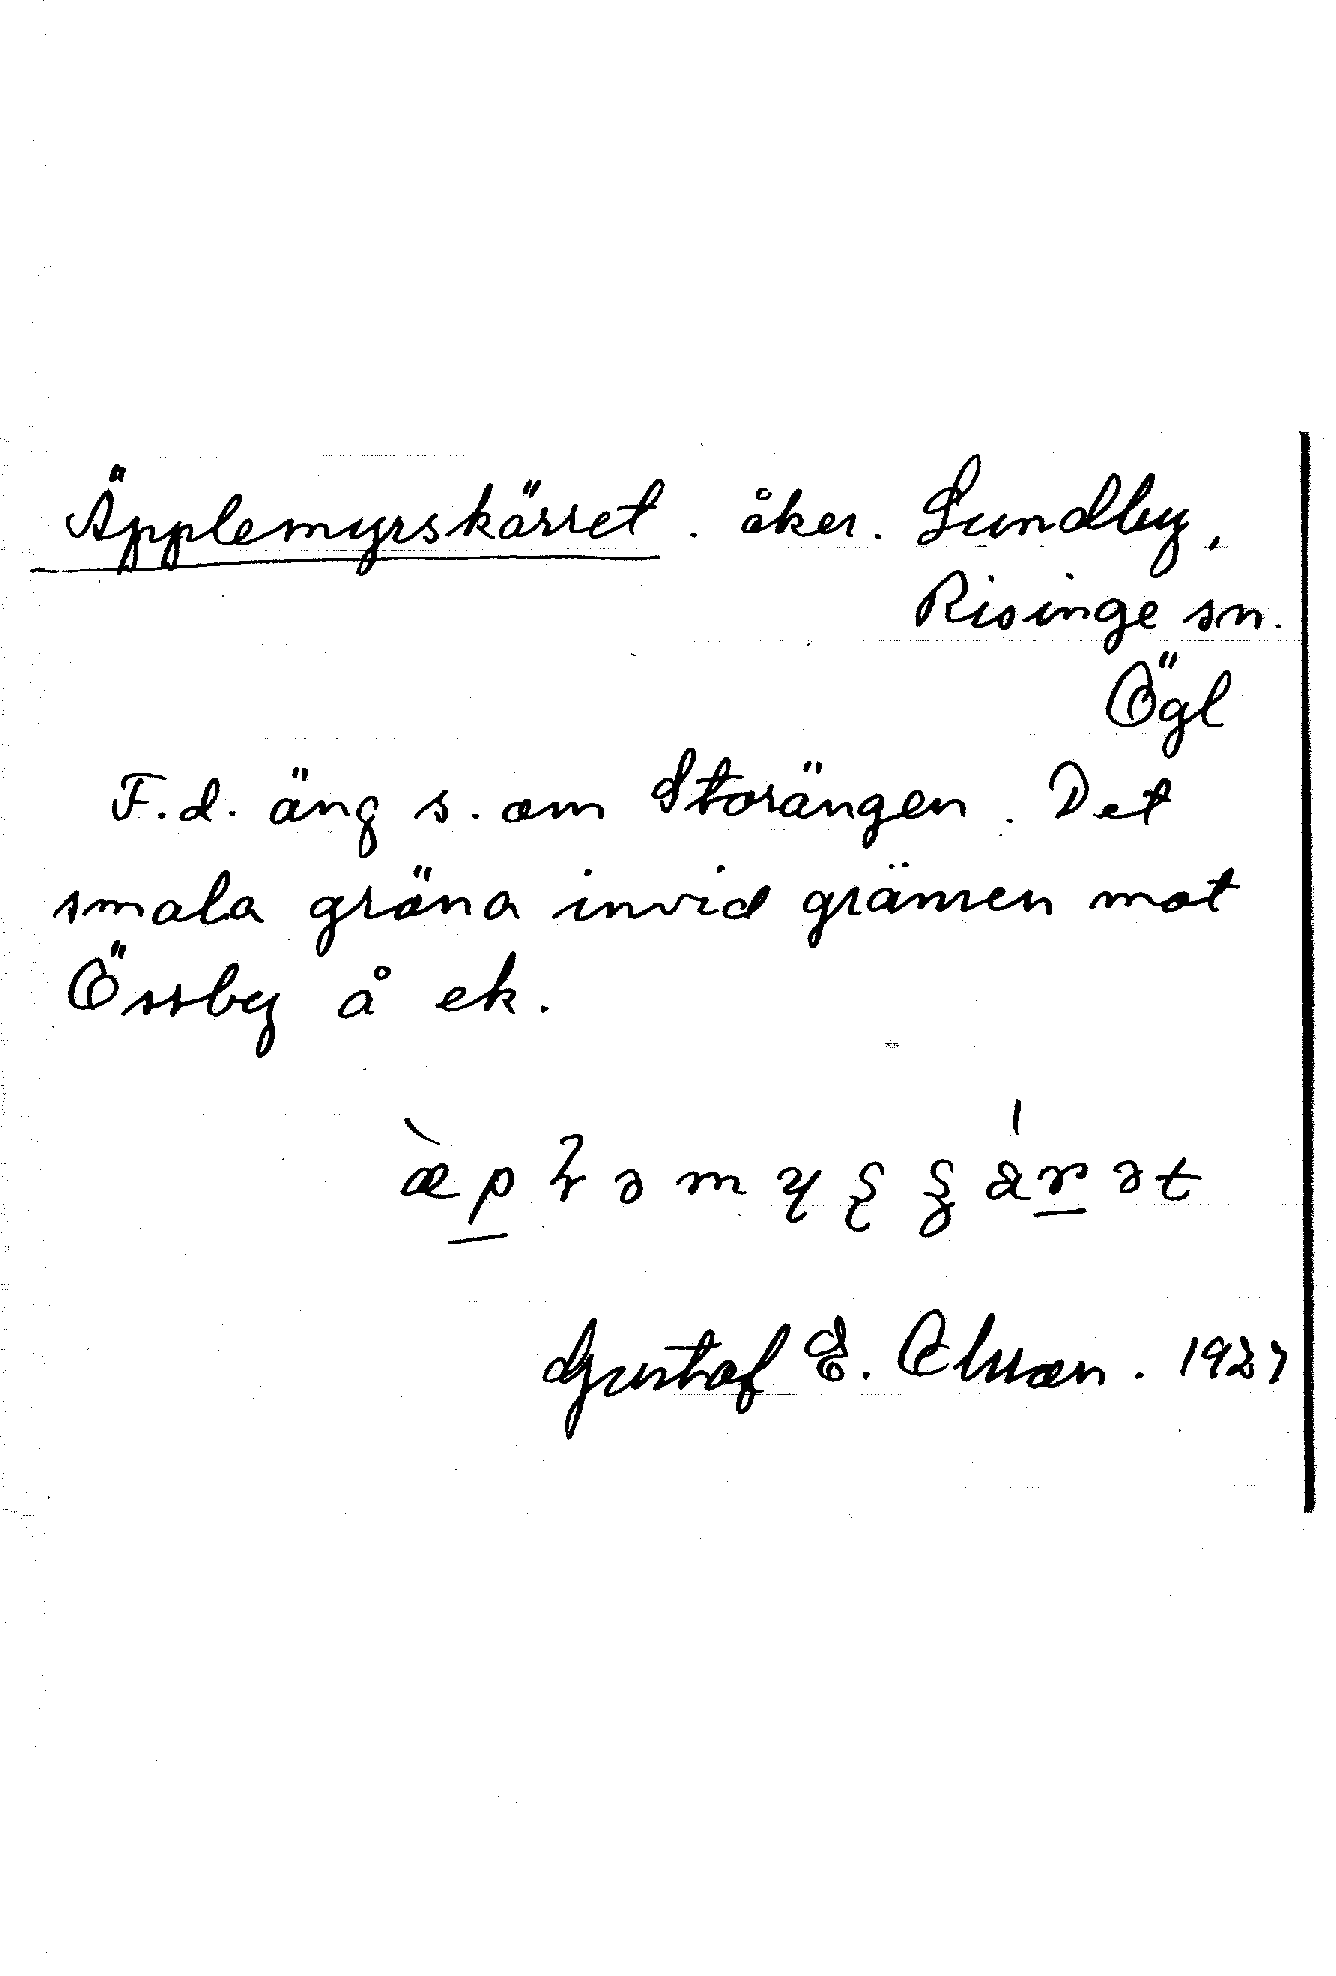 Äpplemyrskärret. åker. Lundby,
Risinge sn.
Ögl
F.d. äng s. om Storängen. Det
smala gröna invid gränsen mot
Össby å ek.
Gustaf E. Olsson. 1927